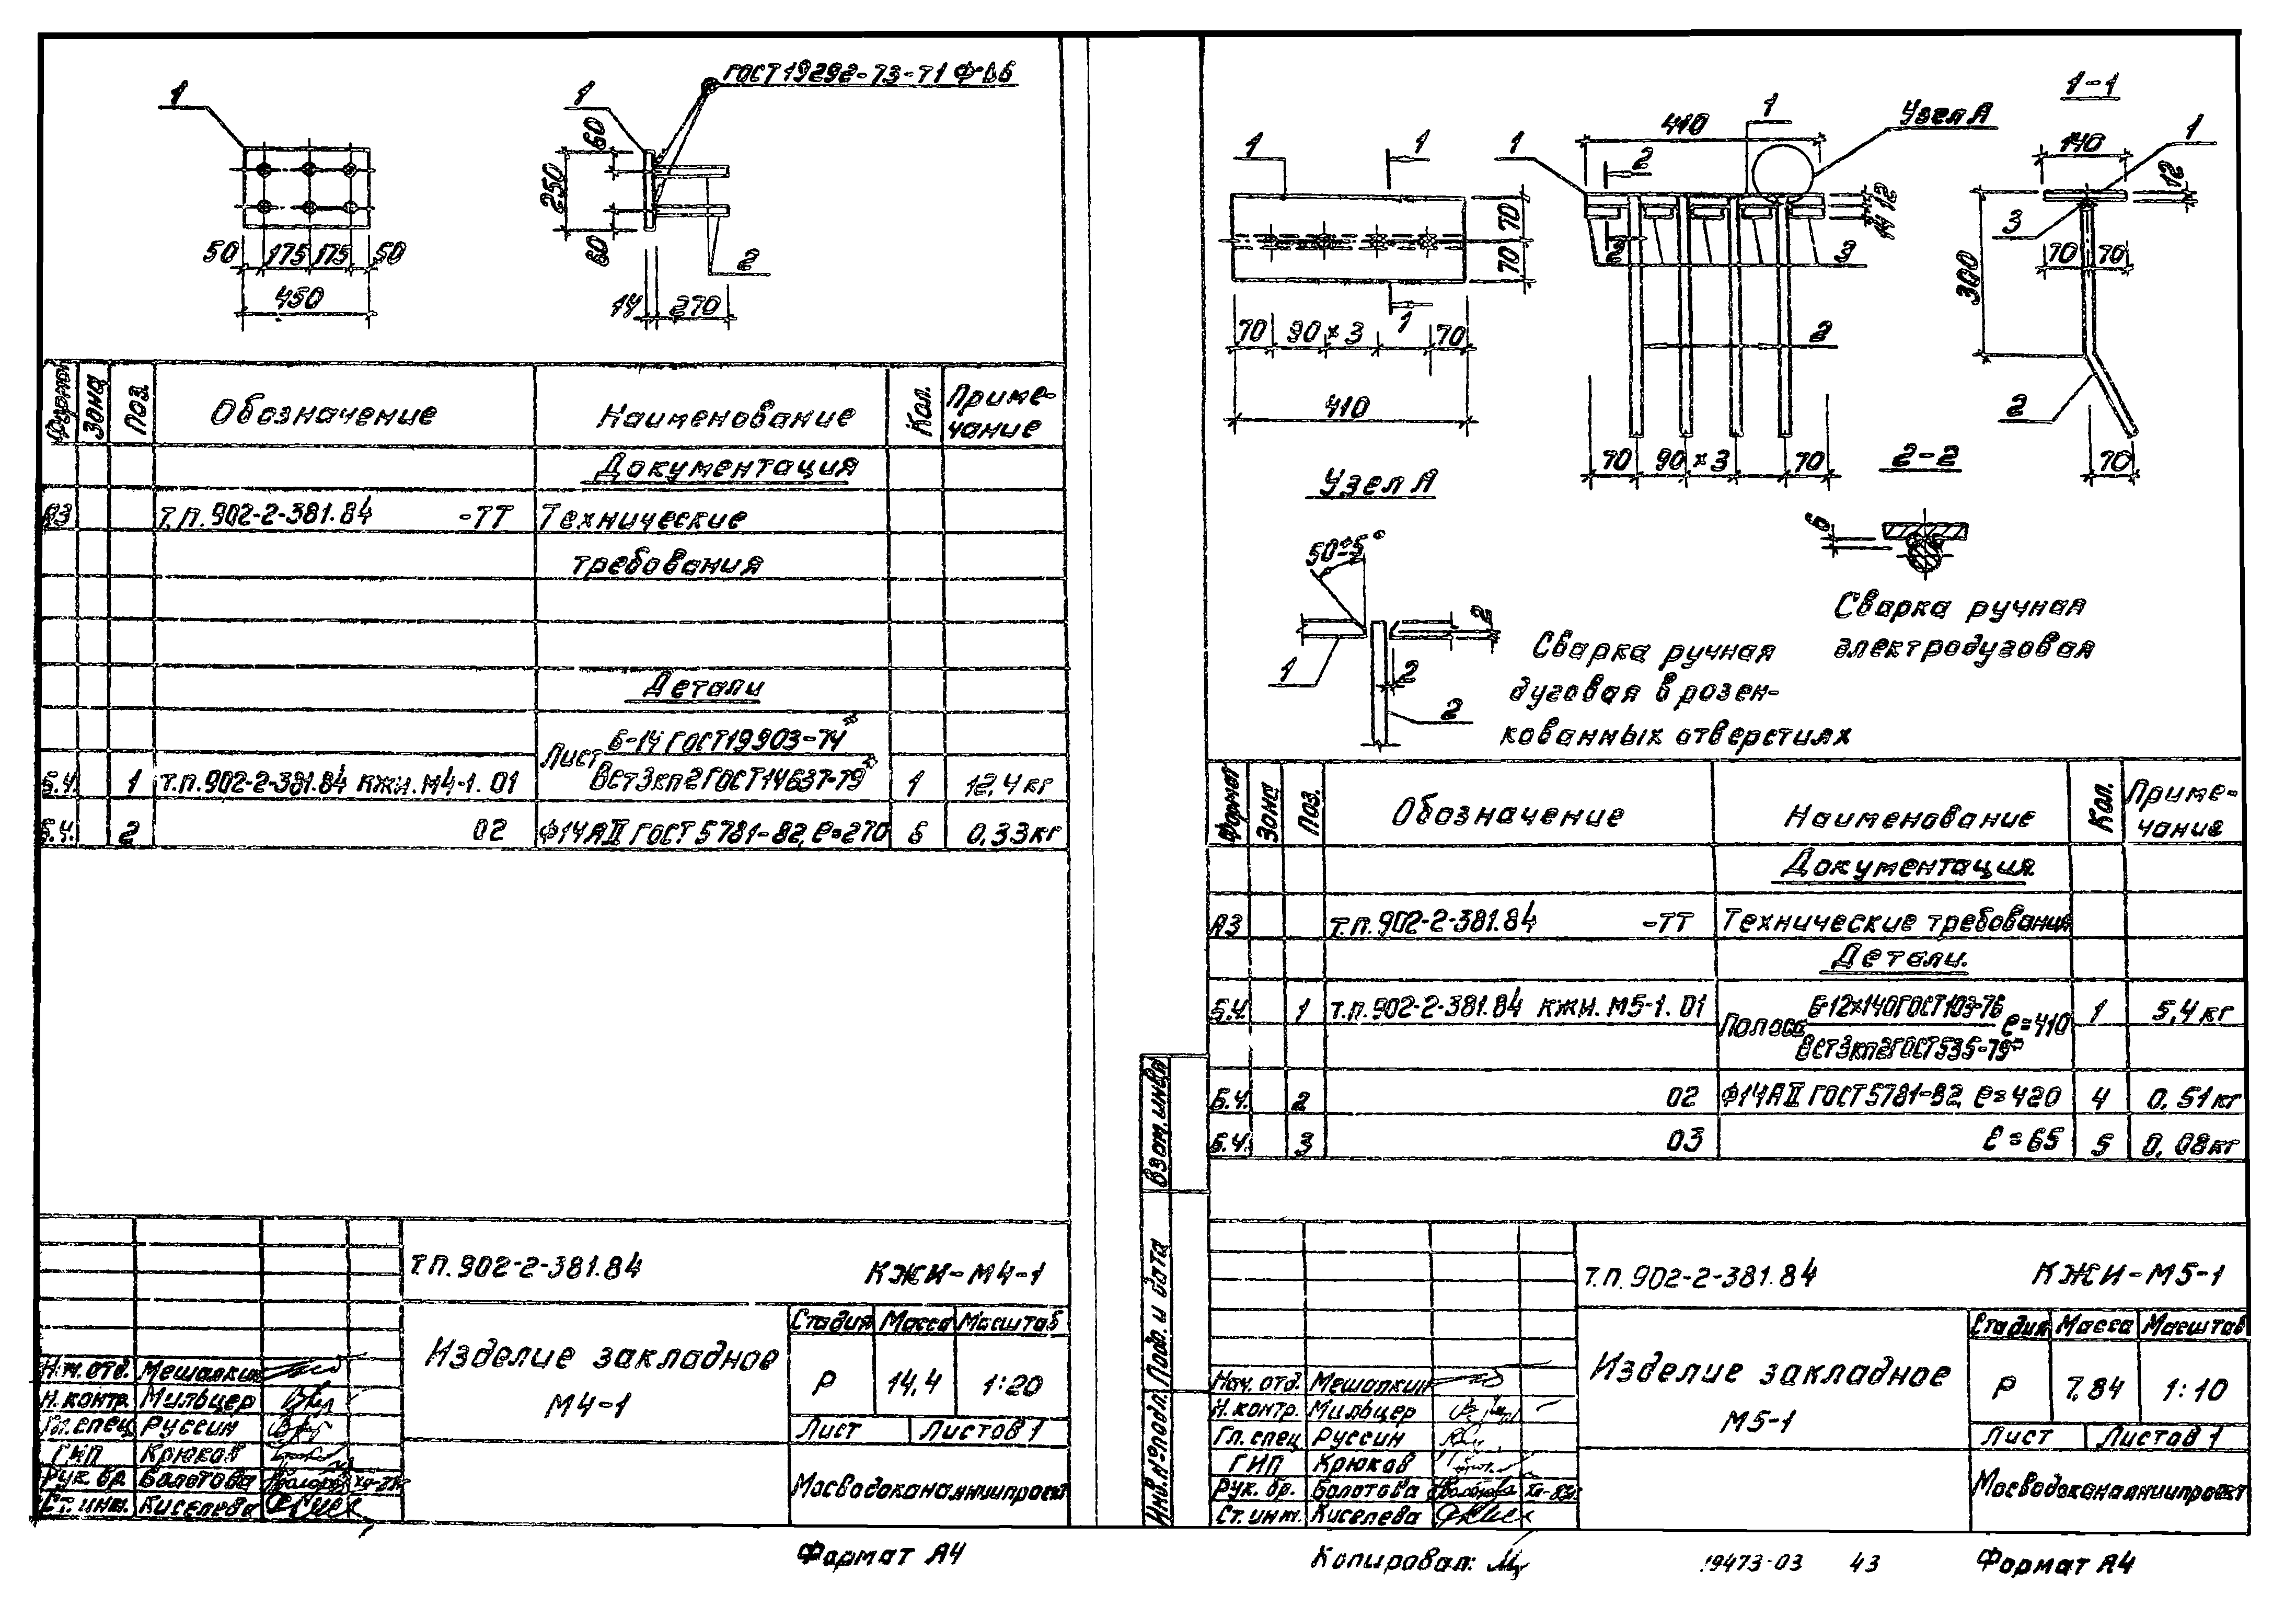 1
ГОСТ 19292-73-Т1 Ф-Δ6
1
60
250
60
2
50 175 175 50
450
14 270
Формат Зона Поз. Обозначение Наименование Кол. Приме-
чание
Документация
А3 Т.П. 902-2-381.84 -ТТ Технические
требования
Детали
Лист Б-14 ГОСТ 19903-74*
ВСт3кп2 ГОСТ 14637-79*
Б.Ч. 1 Т.П. 902-2-381.84 КЖИ.М4-1.01 1 12,4 кг
Б.Ч. 2 02 Ф14АII ГОСТ 5781-82, ℓ=270 6 0,33 кг
Т.П. 902-2-381.84 КЖИ-М4-1
Изделие закладное
М4-1
Стадия Масса Масштаб
Р 14,4 1:20
Лист Листов 1
Мосводоканалниипроект
Н.м. отд. Мешалкин
Н. контр. Мильцер
Гл. спец Руссин
ГИП Крюков
Рук. бр. Болотова
Ст. инж. Киселева
Формат А4
1 1
70
70
70 90×3 1 70
410
1 410 1 Узел А
2
12
14
2
3
2
70 90×3 70
1-1
140 1
12
3
300
70 70
2
70
Узел А
50±5°
2
1
2
2
Сварка ручная
дуговая в розен-
кованных отверстиях
2-2
6
Сварка ручная
электродуговая
Формат Зона Поз. Обозначение Наименование Кол. Приме-
чание
Документация
А3 Т.П. 902-2-381.84 -ТТ Технические требования
Детали.
Б.Ч. 1 Т.П. 902-2-381.84 КЖИ.М5-1.01 Полоса Б-12×140 ГОСТ 103-76 ℓ=410 1 5,4 кг
ВСт3кп2 ГОСТ 535-79*
Б.Ч. 2 02 Ф14АII ГОСТ 5781-82, ℓ=420 4 0,51 кг
Б.Ч. 3 03 ℓ=65 5 0,08 кг
Взам. инв№
Подп. и дата
Инв. № подл.
Т.П. 902-2-381.84 КЖИ-М5-1
Изделие закладное
М5-1
Стадия Масса Масштаб
Р 7,84 1:10
Лист Листов 1
Мосводоканалниипроект
Нач. отд. Мешалкин
Н. контр. Мильцер
Гл. спец Руссин
ГИП Крюков
Рук. бр. Болотова
Ст. инж. Киселева
Копировал: 19473-03 43 Формат А4